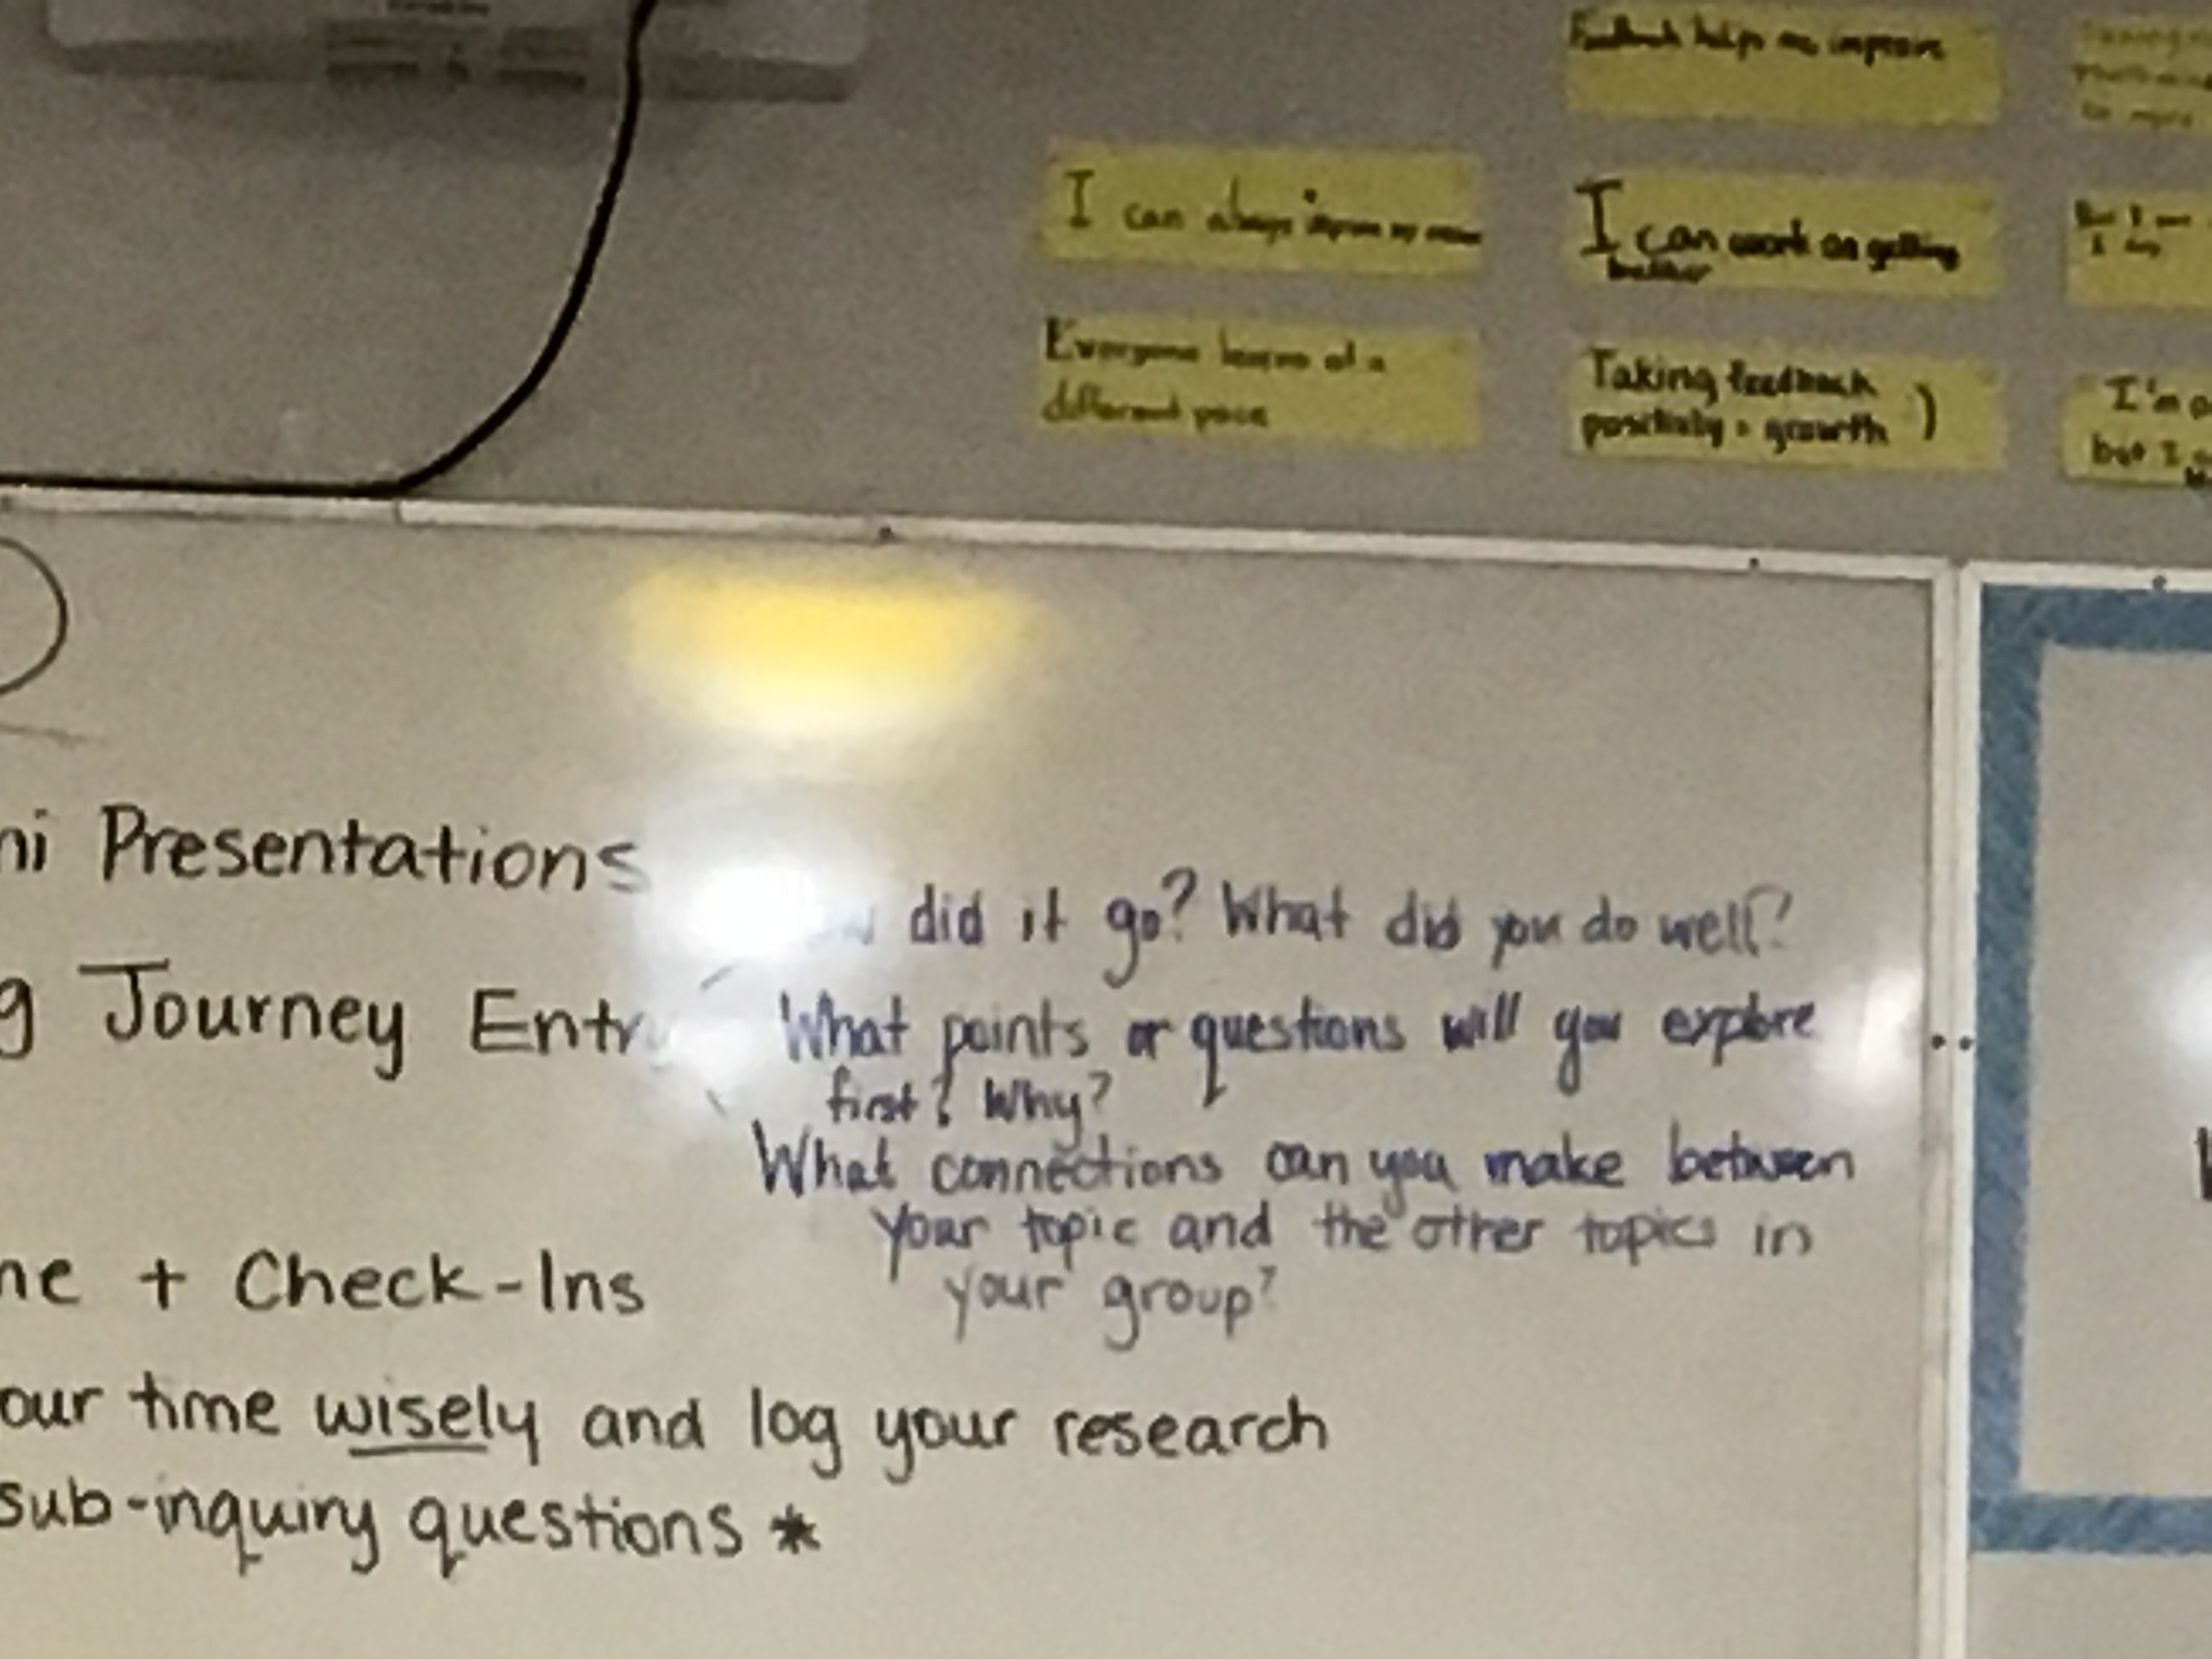 Feedback helps me improve
I can always improve my
I can work on getting
better
Everyone learns at a
different pace
Taking feedback
positivly = growth )
I'm
but I
ni Presentations
did it go? What did you do well?
g Journey Entry
What points or questions will you explore
first? Why?
What connections can you make between
your topic and the other topics in
your group?
ne + Check-Ins
our time wisely and log your research
sub-inquiry questions *